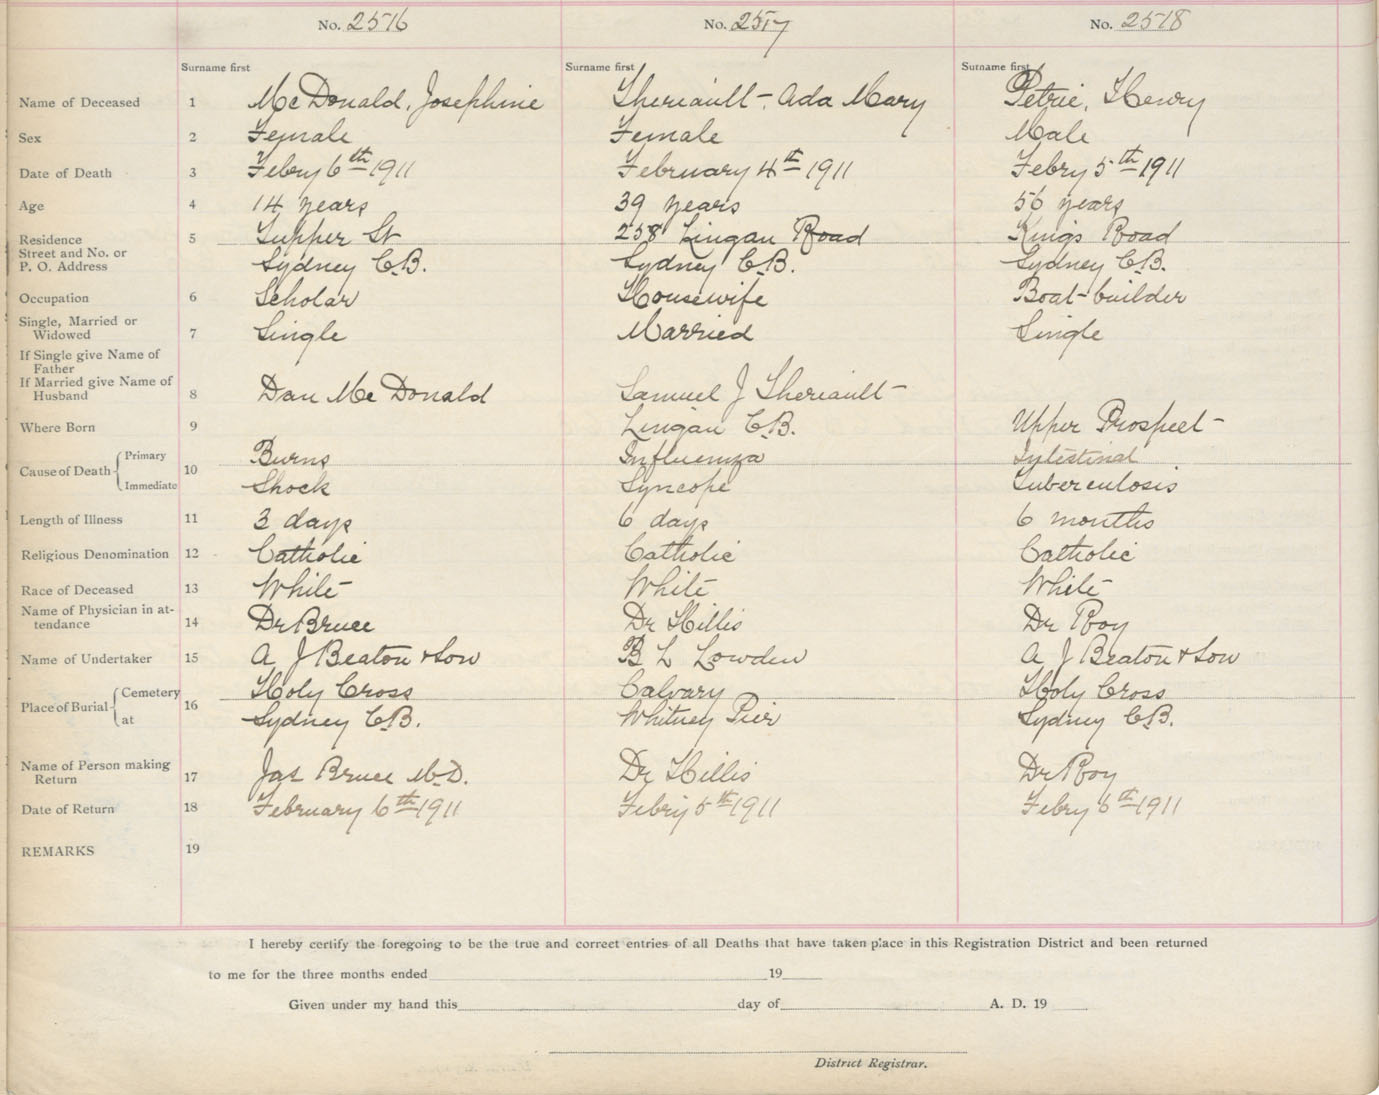 No. 2516 No. 2517 No. 2518
Surname first Surname first Surname first
Name of Deceased 1 McDonald, Josephine Theriault - Ada Mary Petrie, Henry
Sex 2 Female Female Male
Date of Death 3 Febry 6th 1911 February 4th 1911 Febry 5th 1911
Age 4 14 years 39 years 56 years
Residence 5 Tupper St 258 Lingan Road Kings Road
Street and No. or
P. O. Address Sydney C.B. Sydney C.B. Sydney C.B.
Occupation 6 Scholar Housewife Boat-builder
Single, Married or
Widowed 7 Single Married Single
If Single give Name of
Father
If Married give Name of
Husband 8 Dan McDonald Samuel J Theriault
Where Born 9 Lingan C.B. Upper Prospect
Cause of Death Primary 10 Burns Influenza Intestinal
Immediate Shock Syncope Tuberculosis
Length of Illness 11 3 days 6 days 6 months
Religious Denomination 12 Catholic Catholic Catholic
Race of Deceased 13 White White White
Name of Physician in at-
tendance 14 Dr Bruce Dr Hillis Dr Roy
Name of Undertaker 15 A J Beaton & Son B L Lowden A J Beaton & Son
Place of Burial Cemetery 16 Holy Cross Calvary Holy Cross
at Sydney C.B. Whitney Pier Sydney C.B.
Name of Person making
Return 17 Jas Bruce M.D. Dr Hillis Dr Roy
Date of Return 18 February 6th 1911 Febry 5th 1911 Febry 6th 1911
REMARKS 19
I hereby certify the foregoing to be the true and correct entries of all Deaths that have taken place in this Registration District and been returned
to me for the three months ended 19
Given under my hand this day of A. D. 19
District Registrar.